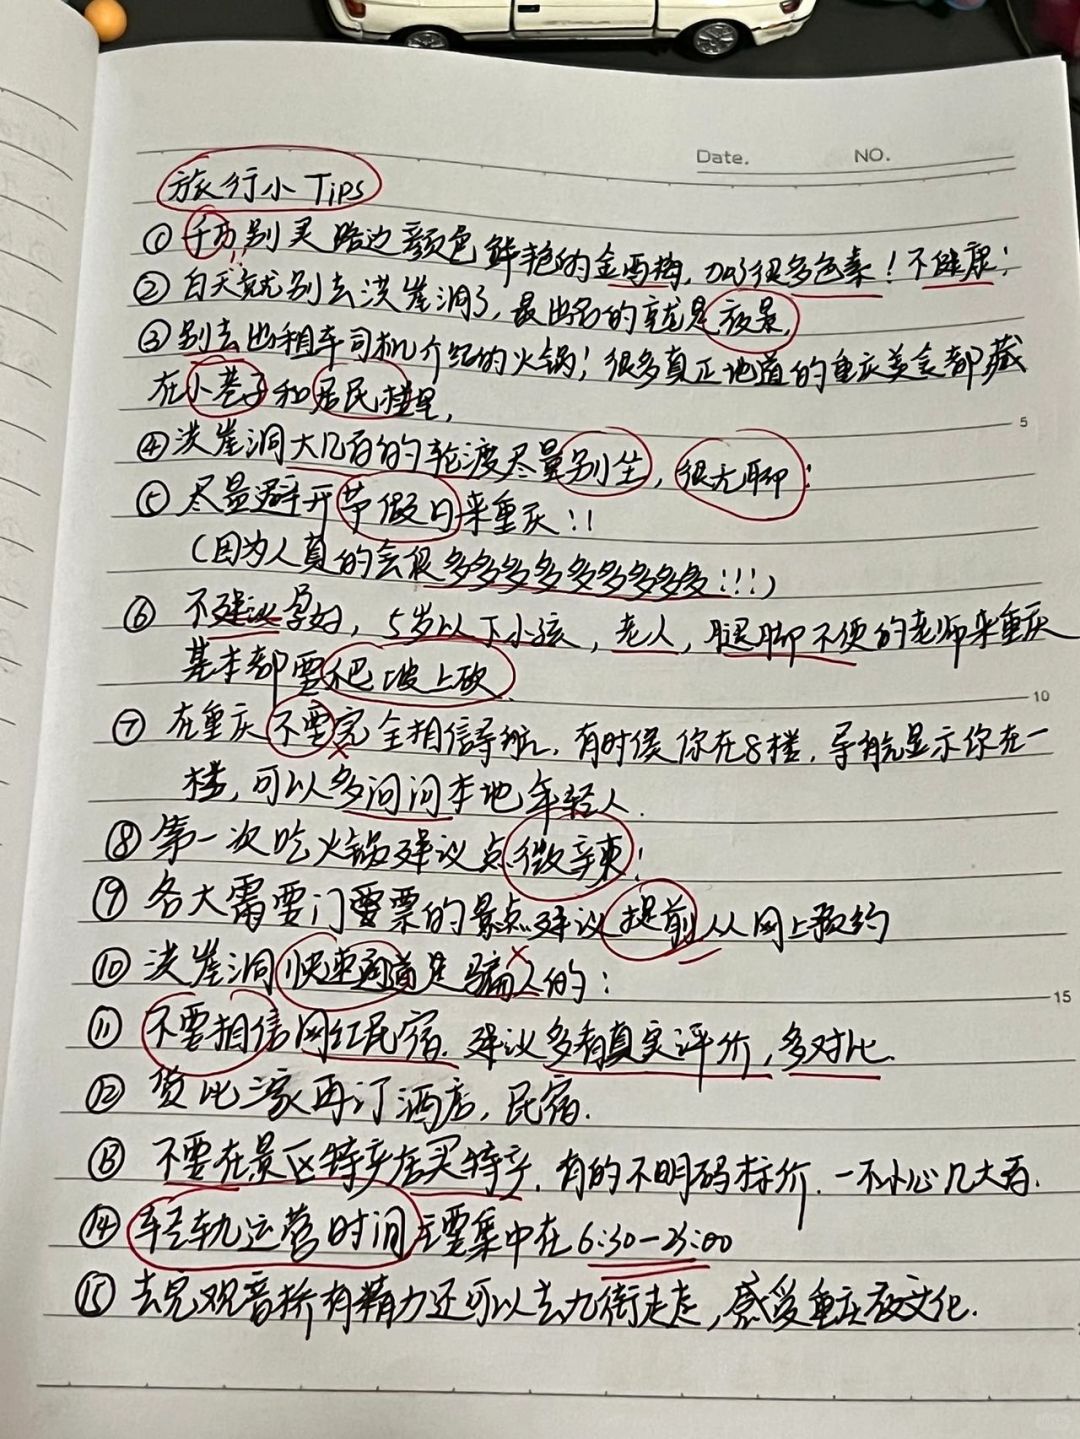 Date.
NO.
旅行小 Tips
① 千万别买路边颜色鲜艳的金西梅，加了很多色素！不健康；
② 白天就别去洪崖洞了，最出名的就是夜景，
③ 别去出租车司机介绍的火锅；很多真正地道的重庆美食都藏
在小巷子和居民楼里，
④ 洪崖洞大几百的轮渡尽量别坐，很无聊；
⑤ 尽量避开节假日来重庆！！
（因为人真的会很多多多多多多多多多多！！！）
⑥ 不建议孕妇，5岁以下小孩，老人，腿脚不便的老师来重庆
基本都要爬坡上砍
⑦ 在重庆不要完全相信导航，有时候你在8楼，导航显示你在一
楼，可以多问问本地年轻人.
⑧ 第一次吃火锅建议点微辛辣；
⑨ 各大需要门要票的景点建议提前从网上预约
⑩ 洪崖洞快速通道是骗人的；
⑪ 不要相信网红民宿. 建议多看真实评价，多对比.
⑫ 货比三家再订酒店，民宿.
⑬ 不要在景区特产店买特产，有的不明码标价. 一不小心几大百.
⑭ 轻轨运营时间主要集中在 6:30—23:00
⑮ 去完观音桥有精力还可以去九街走走，感受重庆夜文化.
5
10
15